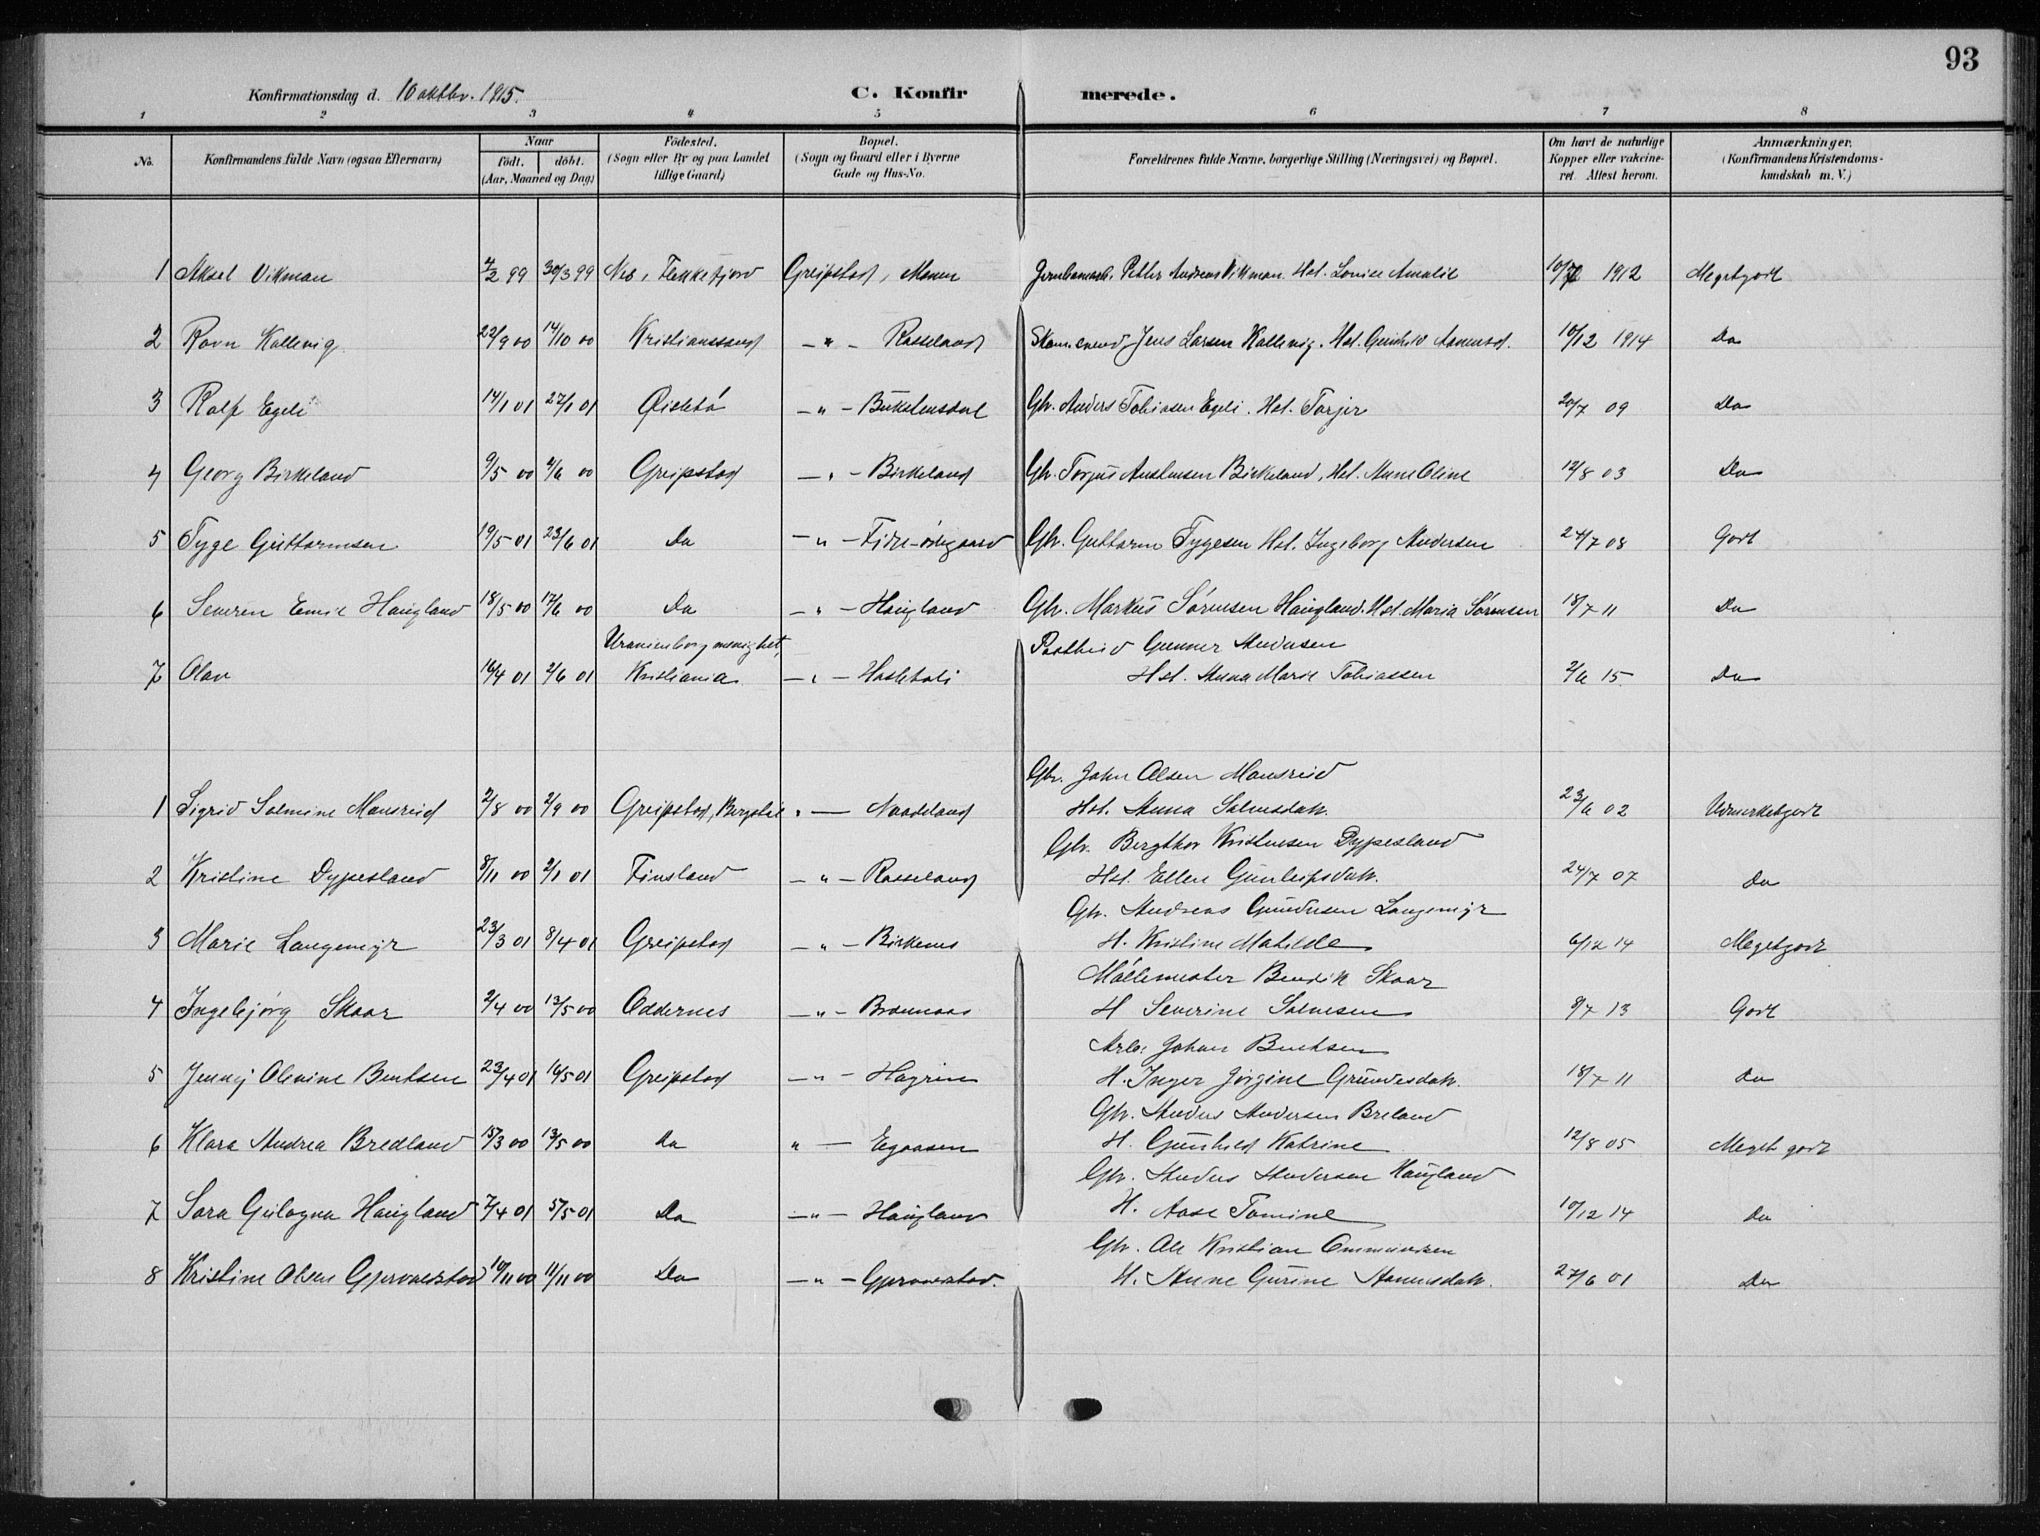 93
Konfirmationsdag d. 10 oktbr. 1915. C. Konfirmerede.
1 2 3 4 5 6 7 8
No. Konfirmandens fulde Navn (ogsaa Efternavn) Naar født. døbt. (Aar, Maaned og Dag) Fødested. (Sogn eller By og paa Landet tillige Gaard) Bopæl. (Sogn og Gaard eller i Byerne Gade og Hus-No. Forældrenes fulde Navne, borgerlige Stilling (Næringsvei) og Bopæl. Om havt de naturlige Kopper eller vakcineret. Attest herom. Anmærkninger. (Konfirmandens Kristendomskundskab m. V.)
1 Aksel Vikman 4/2 99 30/3 99 Nes, Flekkefjord Greipstad, Moner Peder Andreas Vikman. Hst. Lovise Amalie 1912 Megetgodt
2 Ravn Kallevig 22/9 00 14/10 00 Kristianssand - " - Rosseland Jens Larsen Kallevig. Hst. Gunhild 10/12 1914 Do
3 Rolf Egeli 14/1 01 27/1 01 Øiestø - " - Gbr. Anders Tobiasen Egeli. Hst. Torjer 20/7 09 Do
4 Georg Birkeland 9/5 00 4/6 00 Greipstad - " - Birkeland Gbr. Torjus Austensen Birkeland, Hst. Anne Oline 12/8 03 Do
5 Tyge Guttormsen 19/5 01 23/6 01 Do - " - Fidje-ødegaard Gbr. Guttorm Tygesen Hst. Ingeborg Andersen 24/7 08 Godt
6 Severen Emil Haugland 18/5 00 17/6 00 Do - " - Haugland Gbr. Markus Sørensen Haugland. Hst. Maria Sørensen 18/7 11 Do
Uranienborg menighet, Gunner Andersen
7 Olav 16/4 01 2/6 01 Kristiania - " - Hortetoli Hst. Anna Marie Tobiassen 2/6 15 Do
Gbr. John Olsen Monsreid
1 Sigrid Solmine Monsreid 2/8 00 2/9 00 Greipstad, Bergstøl " - Nodeland Hst. Anna Salvesdatr. 23/6 02 Udmerketgodt
Gbr. Bergthor Kristensen Dypesland
2 Kristine Dypesland 8/11 00 2/1 01 Finsland - " - Rosseland Hst. Ellen Gunleifsdatr. 24/7 07 Do
Gbr. Andreas Gundersen Langemyr
3 Marie Langemyr 23/3 01 8/4 01 Greipstad - " - Birkenes H. Kristine Matilde 6/12 14 Megetgodt
Møllemester Bendik Skaar
4 Ingebjørg Skaar 2/4 00 13/5 00 Oddernes - " - Brennaas H Severine Salvesen 8/7 13 Godt
Arb. Johan Bentsen
5 Jenny Olevine Bentsen 23/4 01 16/5 01 Greipstad - " - H. Inger Jørgine Grundesdatr. 18/7 11 Do
Gbr. Anders Andersen Breland
6 Klara Andrea Bredland 15/3 00 13/5 00 Do " - Egaasen H. Gunhild Katrine 12/8 05 Meget godt
Gbr. Anders Andersen Haugland
7 Sara Gulogna Haugland 7/4 01 5/5 01 Do - " - Haugland H. Aase Tomine 10/12 14 Do
Gbr. Ole Kristian Ommundsen
8 Kristine Olsen Gjervoldstad 10/11 00 11/11 00 Do - " - Gjervoldstad. H. Anne Gurine 27/6 01 Do